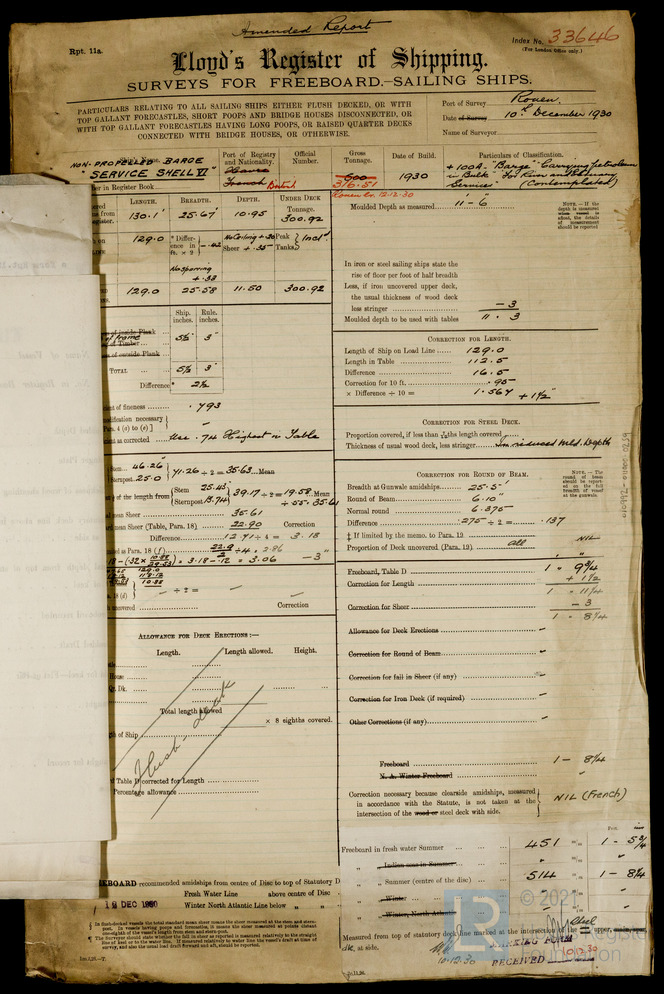 Amended Report
Rpt. 11a.
Index No. 33646
(For London Office only.)
Lloyd's Register of Shipping.
SURVEYS FOR FREEBOARD.—SAILING SHIPS.
PARTICULARS RELATING TO ALL SAILING SHIPS EITHER FLUSH DECKED, OR WITH
TOP GALLANT FORECASTLES, SHORT POOPS AND BRIDGE HOUSES DISCONNECTED, OR
WITH TOP GALLANT FORECASTLES HAVING LONG POOPS, OR RAISED QUARTER DECKS
CONNECTED WITH BRIDGE HOUSES, OR OTHERWISE.
Port of Survey Rouen.
Date of Survey 10th December 1930
Name of Surveyor
NON-PROPELLED BARGE
"SERVICE SHELL VI"
ber in Register Book
Port of Registry and Nationality.
Havre
French British
Official Number.
Gross Tonnage.
600
376.51
Rouen 12.12.30
Date of Build.
1930
Particulars of Classification.
+100A. "Barge" Carrying petroleum
in Bulk" for River and Estuary
Service" (Contemplated)
LENGTH. BREADTH. DEPTH. UNDER DECK Tonnage.
130.1' 25.67' 10.95 300.92
129.0 Differ- ence in ft. × 9 = -.42 No Ceiling +.30 Sheer +.35 Peak Tanks Incld.
No Sparring
+.33
129.0 25.58 11.50 300.92
Moulded Depth as measured 11 - 6
NOTE.—If the depth is measured when vessel is afloat, the details of measurement should be reported
In iron or steel sailing ships state the
rise of floor per foot of half breadth
Less, if iron uncovered upper deck,
the usual thickness of wood deck
less stringer - 3
Moulded depth to be used with tables 11 . 3
Ship. inches. Rule. inches.
of inside Plank
of frame
of Timber 5½ 3"
of outside Plank
TOTAL 5½ 3"
Difference 2½
CORRECTION FOR LENGTH.
Length of Ship on Load Line 129.0
Length in Table 112.5
Difference 16.5
Correction for 10 ft. .95
× Difference ÷ 10 = 1.567 +1½
ent of fineness .793
ification necessary
ara. 4 (a) to (e)]
ent as corrected Use .74 Highest in Table
CORRECTION FOR STEEL DECK.
Proportion covered, if less than 7/10 the length covered
Thickness of usual wood deck, less stringer In reduced Mld. Depth
Stem 46.26"
Sternpost 25.0 71.26 ÷ 2 = 35.63 Mean
of the length from Stem 25.43 Sternpost 13.74 39.17 ÷ 2 = 19.58 Mean
÷ .55 = 35.61
mean Sheer 35.61
rd mean Sheer (Table, Para. 18) 22.90 Correction
Difference 12.71 ÷ 4 = 3.18
ed as Para. 18 (f) 22.9 ÷ 4 = 2.86
= 3.18 - .12 = 3.06 - 3"
18 (d) ÷ 2 =
uncovered Correction
CORRECTION FOR ROUND OF BEAM.
Breadth at Gunwale amidships 25.5'
Round of Beam 6.10"
Normal round 6.375
Difference .275 ÷ 2 = .137
‡ If limited by the memo. to Para. 19 NIL
Proportion of Deck uncovered (Para. 19) all
NOTE.—The round of beam should be reported on the full breadth of vessel at the gunwale.
Freeboard, Table D 1 - 9¾
Correction for Length + 1½
1 - 11¼
Correction for Sheer - 3
1 - 8¼
Allowance for Deck Erections
Correction for Round of Beam
Correction for fall in Sheer (if any)
Correction for Iron Deck (if required)
Other Corrections (if any)
ALLOWANCE FOR DECK ERECTIONS:—
Length. Length allowed. Height.
House
Qr. Dk.
Total length allowed
× 8 eighths covered.
gth of Ship
Flush Deck
d Table D corrected for Length
Percentage allowance
Freeboard 1 - 8¼
N. A. Winter Freeboard
Correction necessary because clearside amidships, measured
in accordance with the Statute, is not taken at the
intersection of the wood or steel deck with side. NIL (French)
Freeboard in fresh water Summer 451 1 - 5¾
" Indian zone in Summer
" Summer (centre of the disc) 514 1 - 8¼
" Winter
" Winter, North Atlantic
EEBOARD recommended amidships from centre of Disc to top of Statutory D
Fresh Water Line above centre of Disc
Winter North Atlantic Line below
19 DEC 1930
Measured from top of statutory deck line marked at the intersection of the steel upper, main
dk. at side.
10.12.30
MARKING FORM
RECEIVED 10.12.30
© 2021